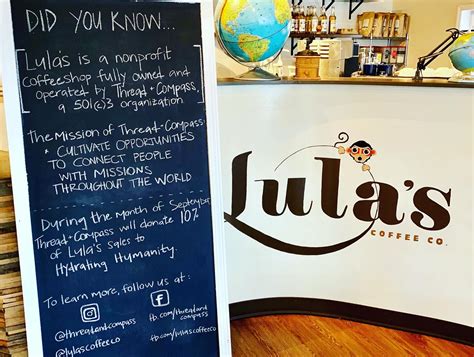 DID YOU KNOW...
[Lula's is a nonprofit
coffeeshop fully owned and
operated by Thread+Compass,
a 501(c)3 organization]
the Mission of Thread+Compass:
* CULTIVATE OPPORTUNITIES
TO CONNECT PEOPLE
WITH MISSIONS
THROUGHOUT THE WORLD
During the Month of September
Thread+Compass will donate 10%
of Lula's sales to
Hydrating Humanity.
To learn more, follow us at:
@threadandcompass
@lulascoffeeco
f
fb.com/threadand
compass
fb.com/lulascoffeeco
Lula's
COFFEE CO.